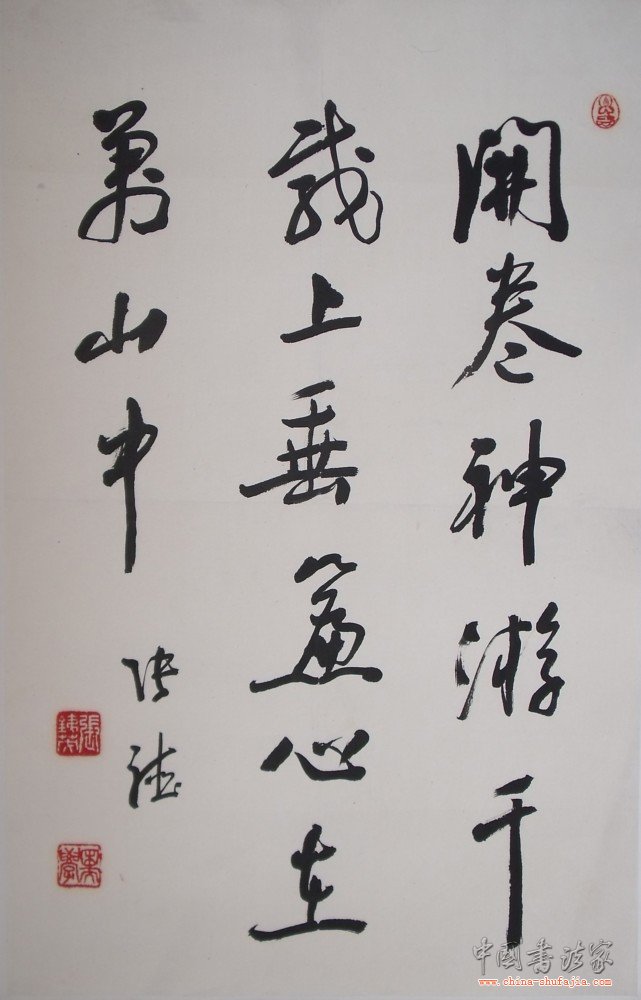 開卷神游千
載上垂簾心在
萬山中
中国书法家
www.china-shufajia.com